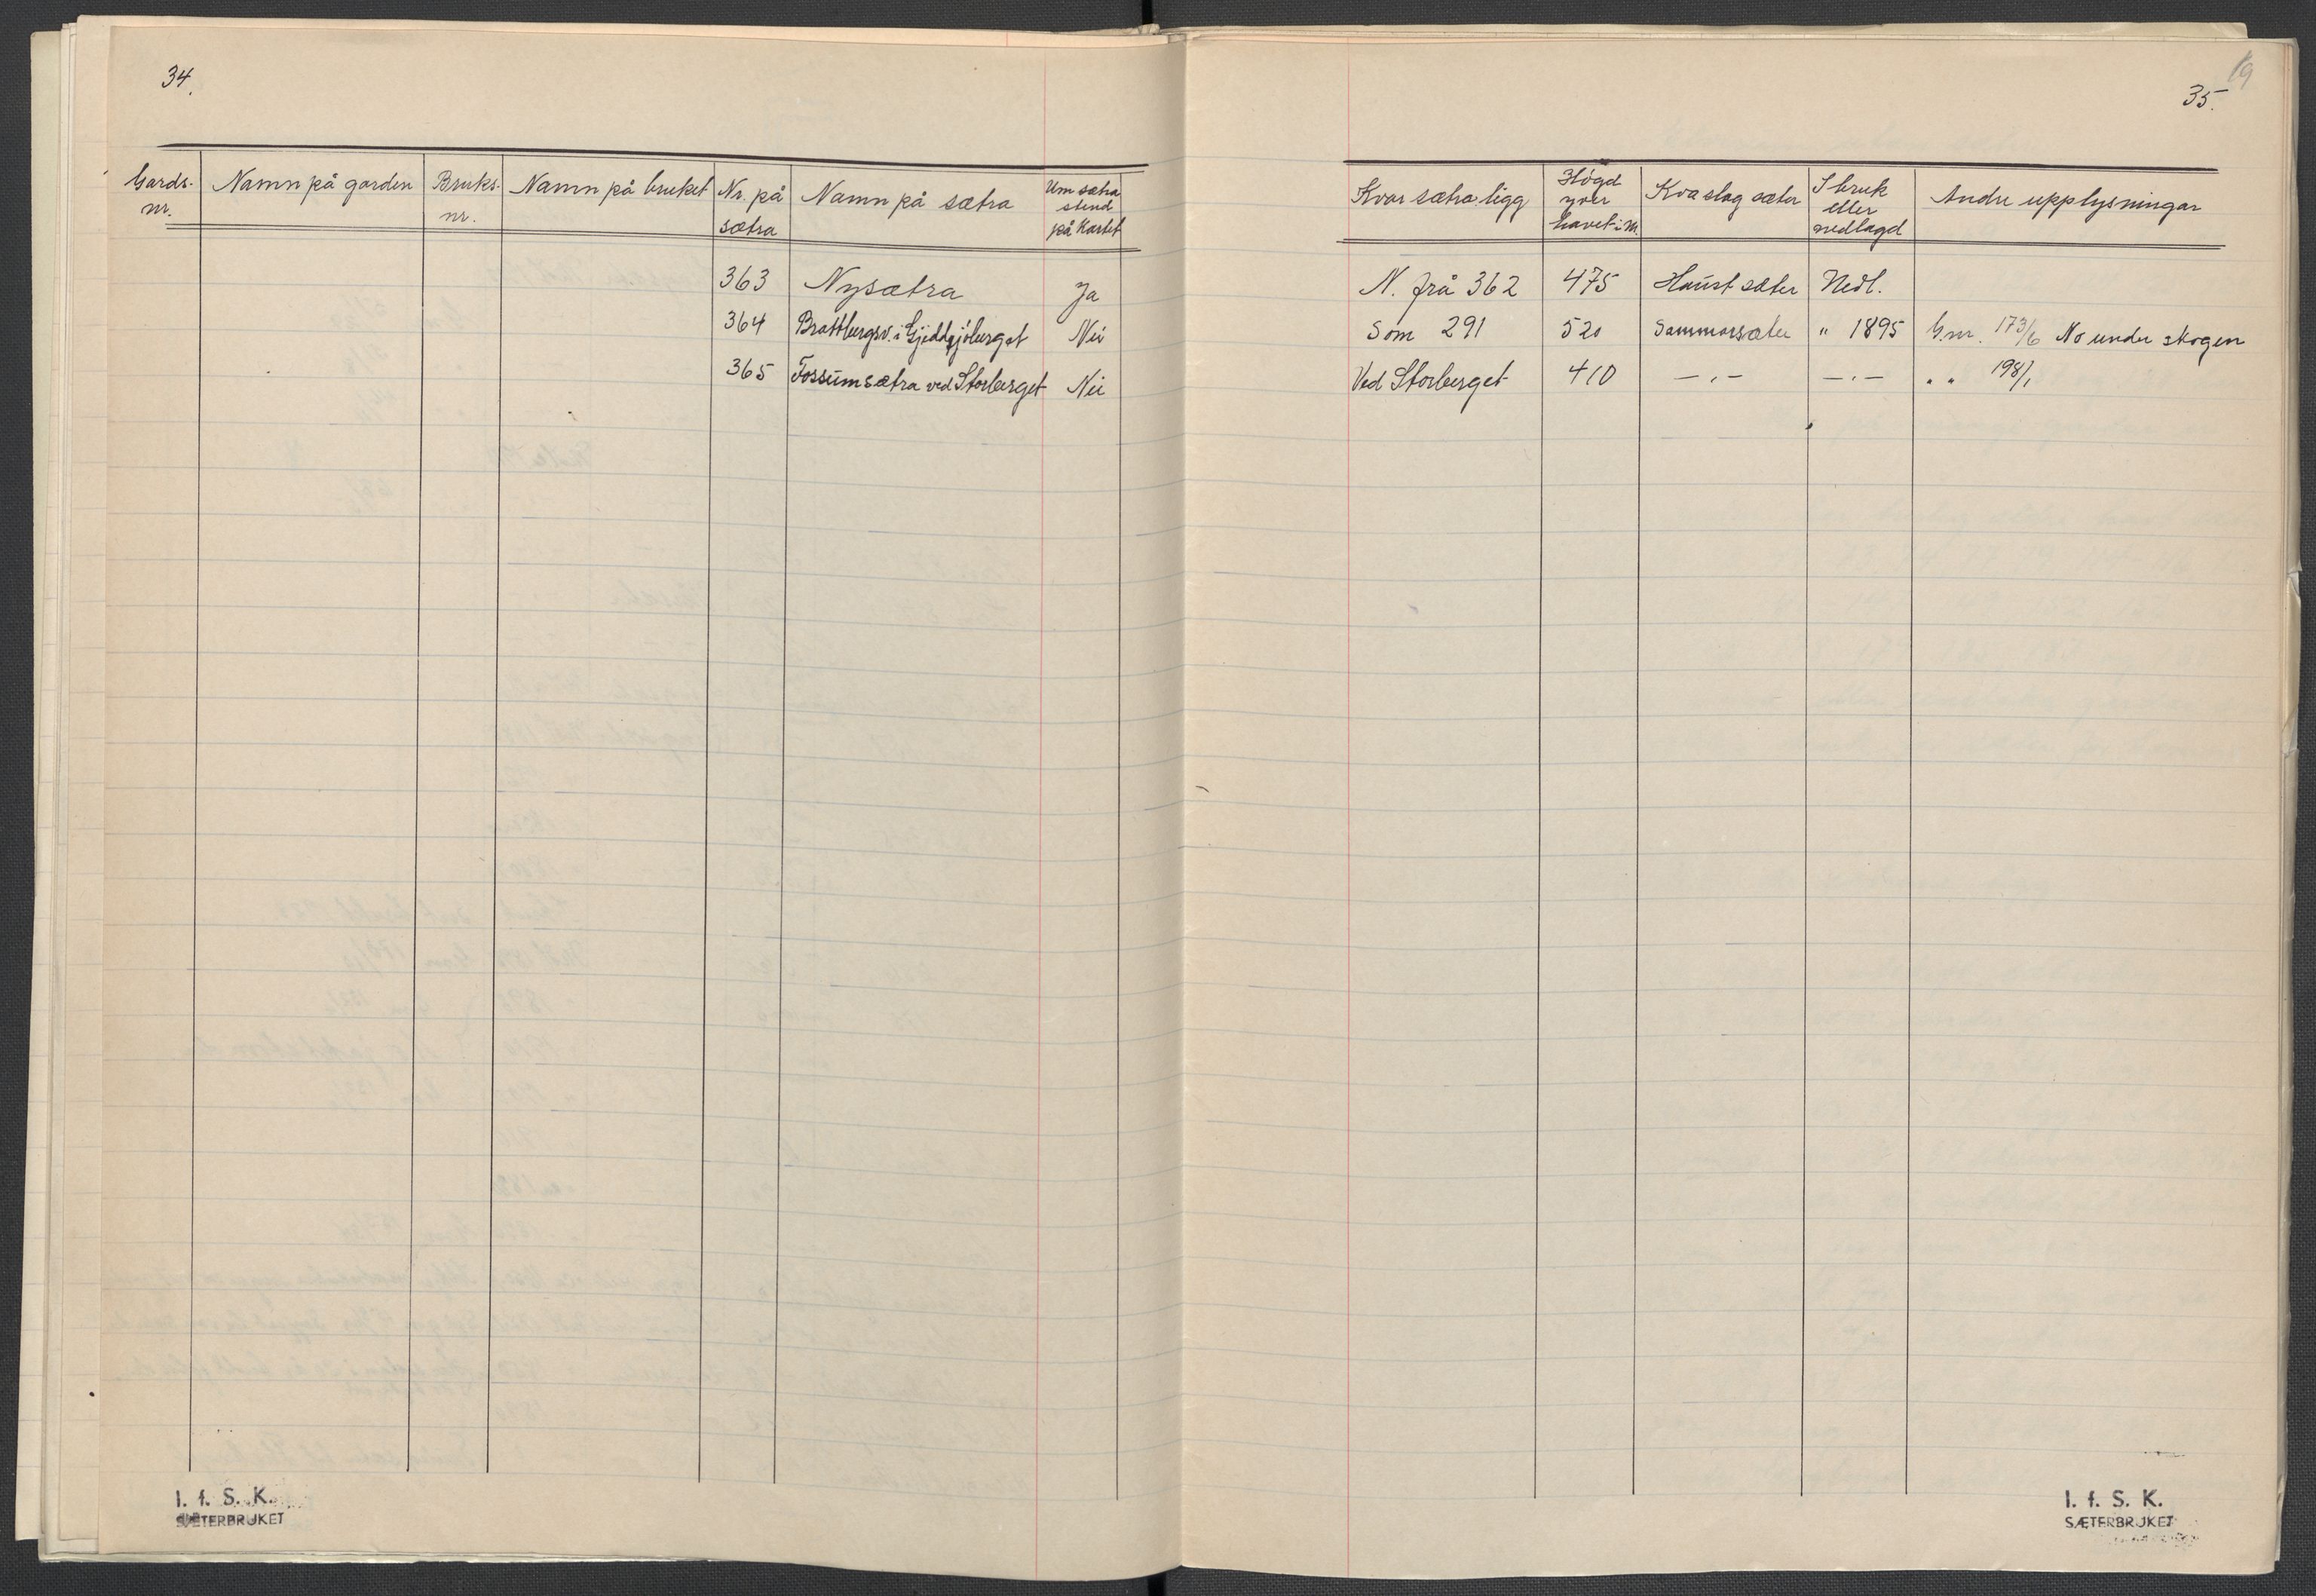 34.
Gards- nr. Namn på garden Bruks- nr. Namn på bruket Nr. på sætra Namn på sætra Um sætra stend på kartet
363 Nysætra Ja
364 Brattbergsv. i Nei
365 Fossumsætra ved Storberget Nei
I. f. S. K.
SÆTERBRUKET
19
35.
Kvar sætra ligg Høgd yver havet i M. Kva slag sæter I bruk eller nedlagd Andre upplysningar
N. frå 362 475 Haust sæter Nedl.
Som 291 520 Sommarsæter " 1895 G.nr. 173/6 No under skogen
Ved Storberget 410 —.— —.— " " 198/1
I. f. S. K.
SÆTERBRUKET